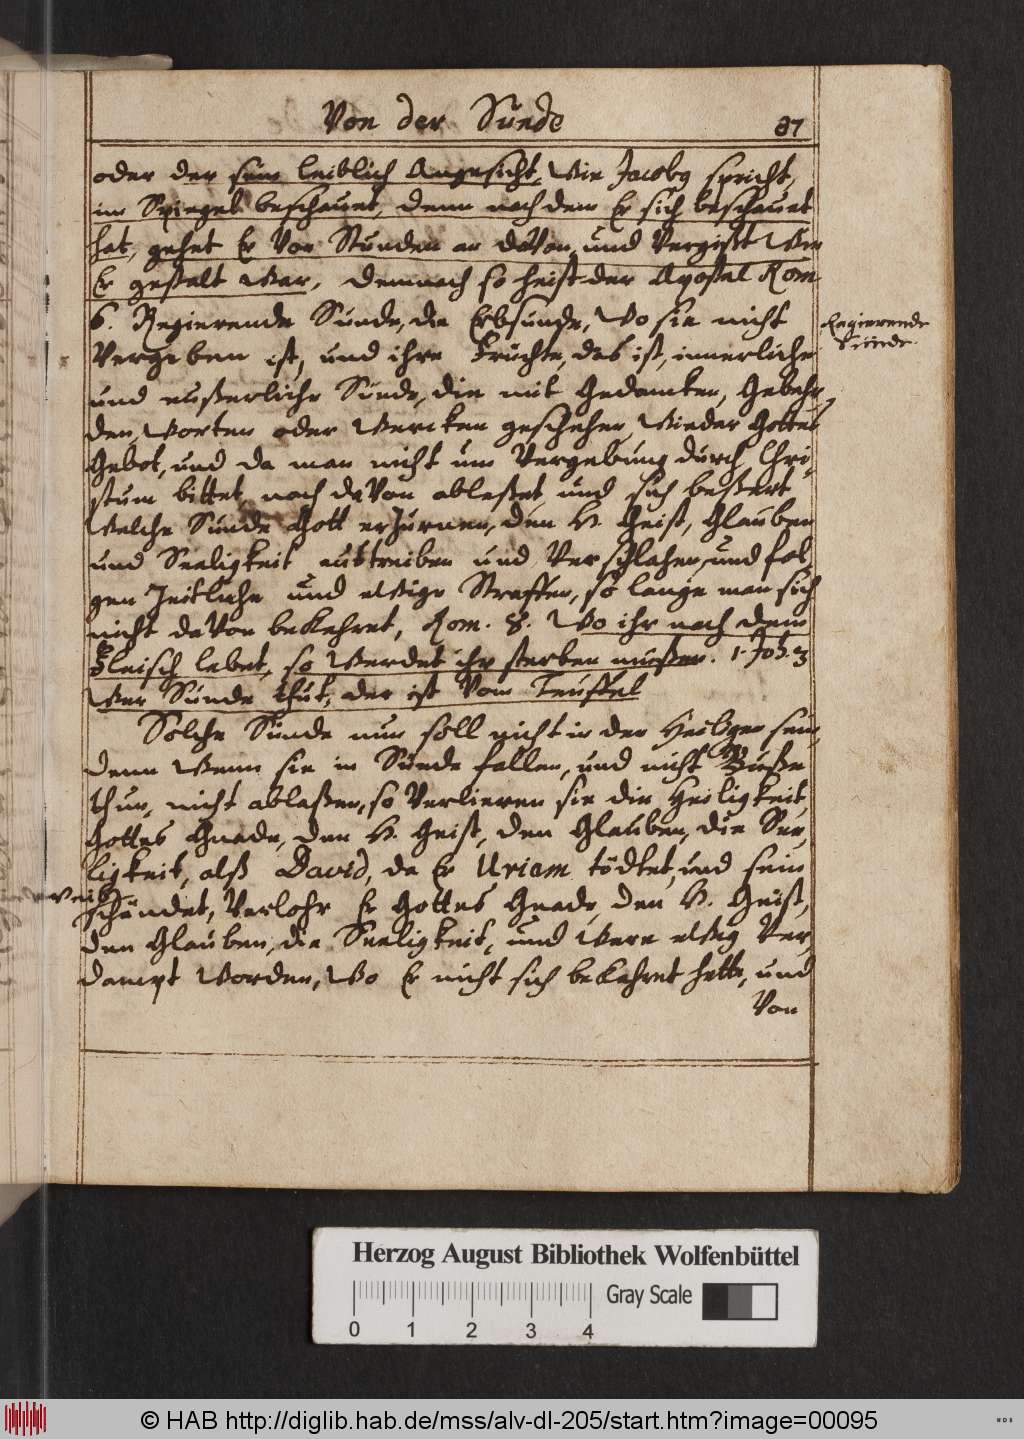 Von der Sünde
87
oder der sein leiblich Angesicht, Wie Jacobus spricht,
im Spiegel beschauet, denn nach dem Er sich beschauet
hat, gehet Er Von Stunden an daVon, und Vergißt Wie
Er gestalt War, demnach so heist der Apostel Rom
6. Regierende Sünde, die Erbsunde, Wo sie nicht
Vergeben ist, und ihre Früchte, das ist, innerliche
und eußerliche Sünde, die mit Gedancken, Gebehr
den, Worten oder Wercken geschehen Wieder Gottes
Gebot, und da man nicht um Vergebung durch Chri
stum bittet, noch daVon ableßet und sich beßert
Welche Sünde Gott erzurnen, den H. Geist, Glauben
und Seeligkeit austreiben und Verschlahen, und fol
gen Zeitliche und eWige Straffen, so lange man sich
nicht daVon bekehret, Rom. 8. Wo ihr nach dem
Fleisch lebet, so Werdet ihr sterben mußen. 1. Joh. 3
Wer Sünde thut, der ist Vom Teuffel
Solche Sünde nun soll nicht in den Heiligen sein,
denn Wenn sie in Sünde fallen, und nicht Buße
thun, nicht ablaßen, so Verlieren sie die Heiligkeit,
Gottes Gnade, den H. Geist, den Glauben, die See
ligkeit, alß David, da Er Uriam tödtet, und sein
Weib
schändet, Verlohr Er Gottes Gnade, den H. Geist,
den Glauben, die Seeligkeit, und Were eWig Ver
dampt Worden, Wo Er nicht sich bekehret hette, und
Von
Regierende
Sünde
Herzog August Bibliothek Wolfenbüttel
Gray Scale
0 1 2 3 4
© HAB http://diglib.hab.de/mss/alv-dl-205/start.htm?image=00095